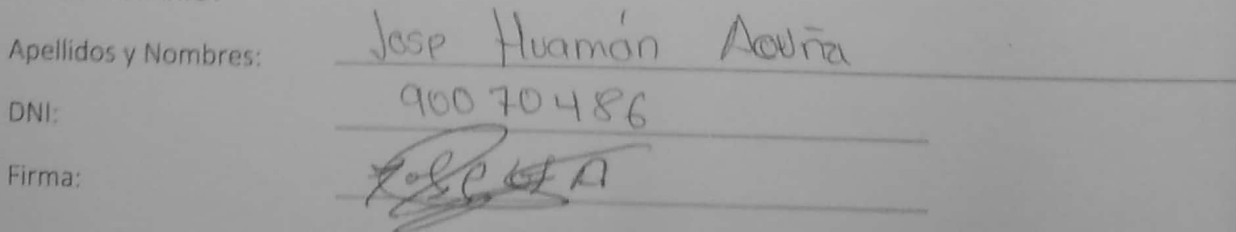 Apellidos y Nombres: Jose Huamán Acuña
DNI: 90070486
Firma: